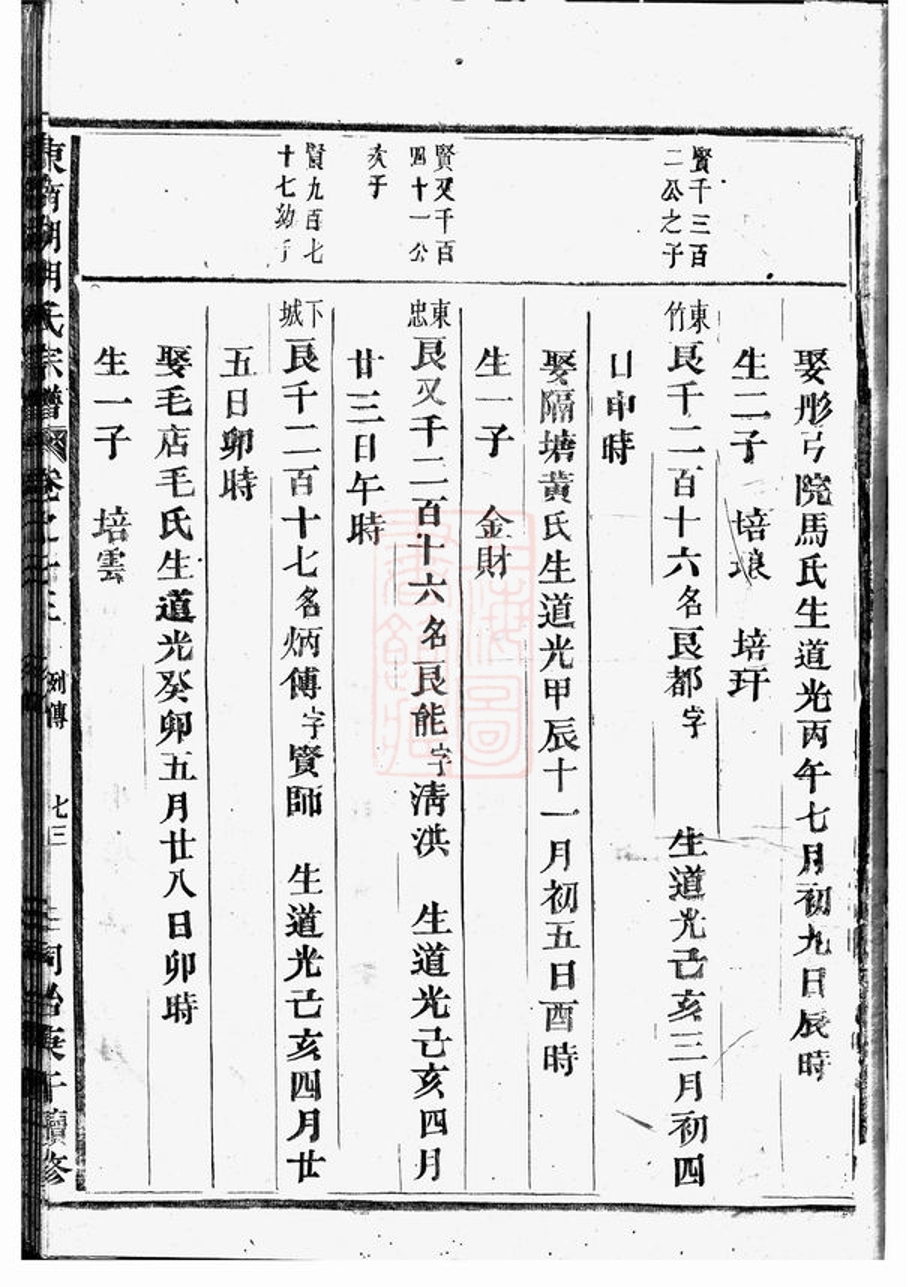 娶彤弓院馬氏生道光丙午七月初九日辰時
生二子 培琅 培玕
賢千三百
二公之子
東
竹
良千二百十六名良都字 生道光己亥三月初四
日申時
娶隔塘黃氏生道光甲辰十一月初五日酉時
生一子 金財
賢又千百
四十一公
次子
東
忠
良又千二百十六名良能字淸洪 生道光己亥四月
廿三日午時
賢九百七
十七幼子
下
城
良千二百十七名炳傳字賢師 生道光己亥四月廿
五日卯時
娶毛店毛氏生道光癸卯五月廿八日卯時
生一子 培雲
胡氏宗譜 卷之 列傳 七三 同治庚午續修